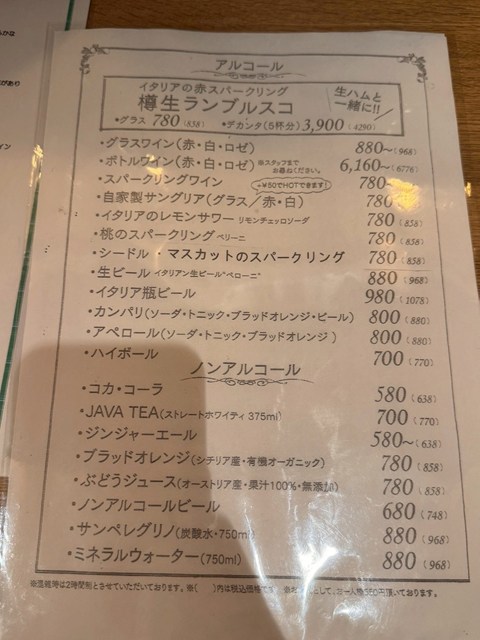 アルコール
イタリアの赤スパークリング
樽生ランブルスコ
生ハムと一緒に!!
・グラス 780(858) ・デカンタ(5杯分) 3,900(4290)
・グラスワイン(赤・白・ロゼ) 880〜(968)
・ボトルワイン(赤・白・ロゼ) ※スタッフまでお尋ねください。 6,160〜(6776)
・スパークリングワイン 780〜
+¥50でHOTできます!
・自家製サングリア(グラス/赤・白) 780
・イタリアのレモンサワー リモンチェッロソーダ 780(858)
・桃のスパークリング ベリーニ 780(858)
・シードル ・マスカットのスパークリング 780(858)
・生ビール イタリアン生ビール"ペローニ" 880(968)
・イタリア瓶ビール 980(1078)
・カンパリ(ソーダ・トニック・ブラッドオレンジ・ビール) 800(880)
・アペロール(ソーダ・トニック・ブラッドオレンジ) 800(880)
・ハイボール 700(770)
ノンアルコール
・コカ・コーラ 580(638)
・JAVA TEA(ストレートホワイティ 375ml) 700(770)
・ジンジャーエール 580〜(638)
・ブラッドオレンジ(シチリア産・有機オーガニック) 780(858)
・ぶどうジュース(オーストリア産・果汁100%・無添加) 780(858)
・ノンアルコールビール 680(748)
・サンペレグリノ(炭酸水・750ml) 880(968)
・ミネラルウォーター(750ml) 880(968)
※混雑時は2時間制とさせていただいております。※( )内は税込価格で